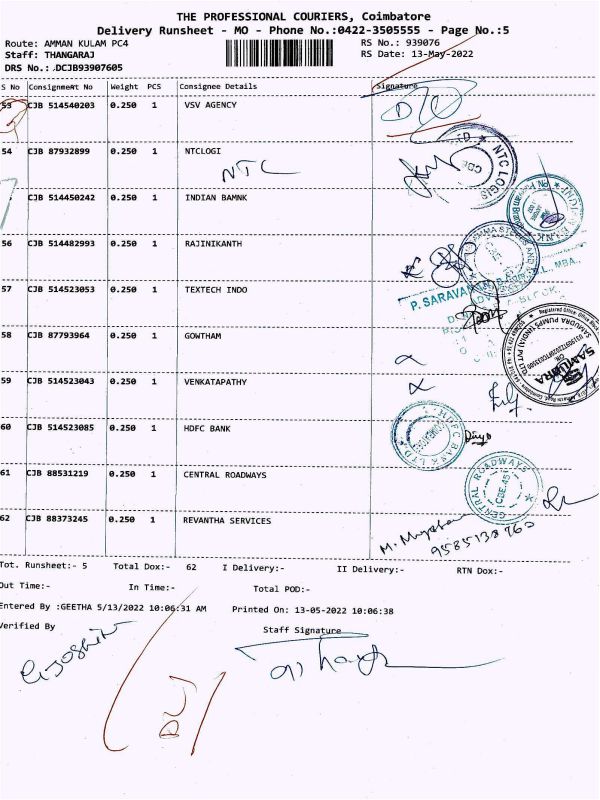 THE PROFESSIONAL COURIERS, Coimbatore
Delivery Runsheet - MO - Phone No.:0422-3505555 - Page No.:5
Route: AMMAN KULAM PC4 RS No.: 939076
Staff: THANGARAJ RS Date: 13-May-2022
DRS No.: DCJB93907605
S No Consignment No Weight PCS Consignee Details Signature
53 CJB 514540203 0.250 1 VSV AGENCY
54 CJB 87932899 0.250 1 NTCLOGI
NTC
NTC LOGIS
CJB 514450242 0.250 1 INDIAN BAMNK
INDIAN BANK
56 CJB 514482993 0.250 1 RAJINIKANTH
57 CJB 514523053 0.250 1 TEXTECH INDO
P. SARAVANA
58 CJB 87793964 0.250 1 GOWTHAM
SAMUDRA PUMPS (INDIA) PVT LTD
SAMUDRA
59 CJB 514523043 0.250 1 VENKATAPATHY
60 CJB 514523085 0.250 1 HDFC BANK
HDFC BANK LTD
61 CJB 88531219 0.250 1 CENTRAL ROADWAYS
CENTRAL ROADWAYS
CBE-45
62 CJB 88373245 0.250 1 REVANTHA SERVICES
9585138760
Tot. Runsheet:- 5 Total Dox:- 62 I Delivery:- II Delivery:- RTN Dox:-
Out Time:- In Time:- Total POD:-
Entered By :GEETHA 5/13/2022 10:06:31 AM Printed On: 13-05-2022 10:06:38
Verified By Staff Signature